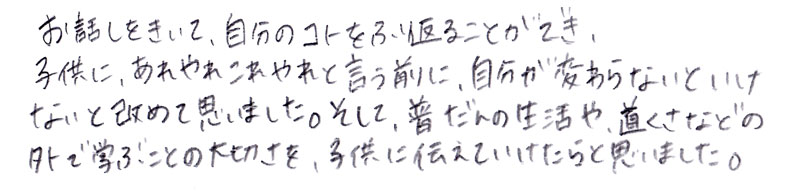 お話しをきいて、自分のコトをふり返ることができ、
子供に、あれやれこれやれと言う前に、自分が変わらないといけ
ないと改めて思いました。そして、普だんの生活や、道くさなどの
外で学ぶことの大切さを、子供に伝えていけたらと思いました。